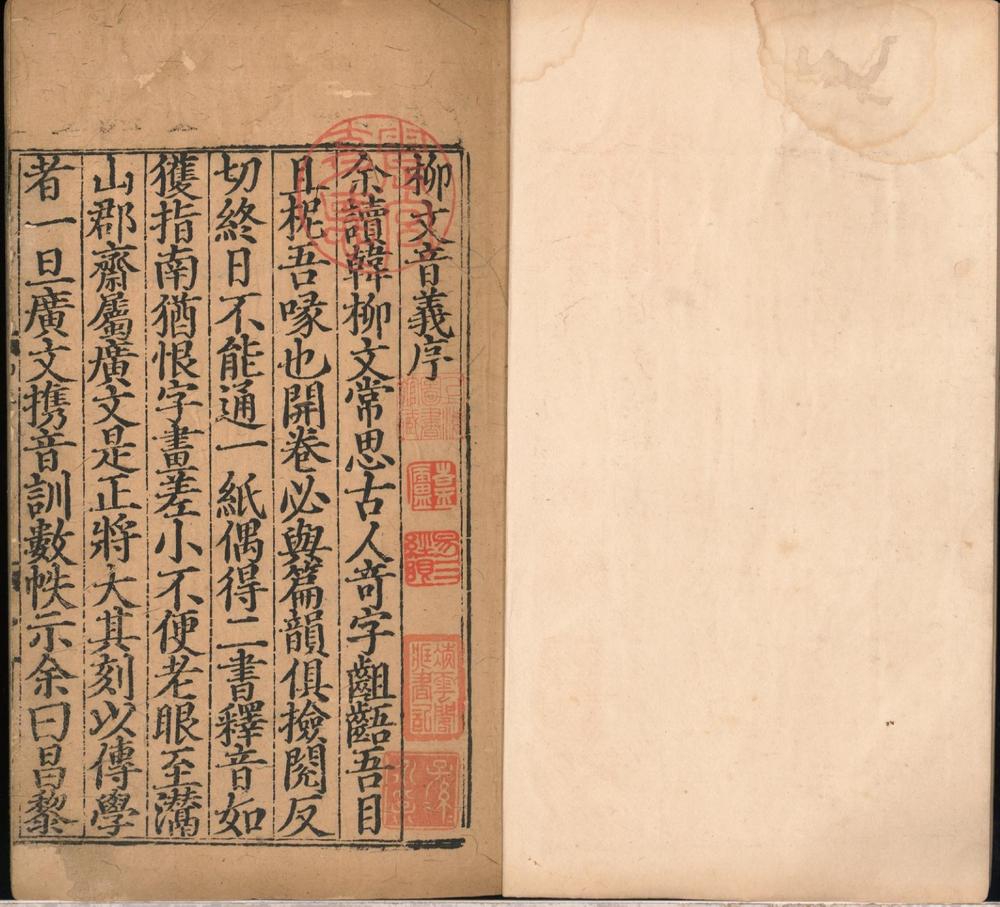 柳文音義序
余讀韓柳文常思古人竒字齟齬吾目
且柅吾喙也開卷必與篇韻俱撿閱反
切終日不能通一紙偶得二書釋音如
獲指南猶恨字畫差小不便老眼至灊
山郡齋屬廣文是正將大其刻以傳學
者一旦廣文携音訓數帙示余曰昌黎
上海圖書館藏